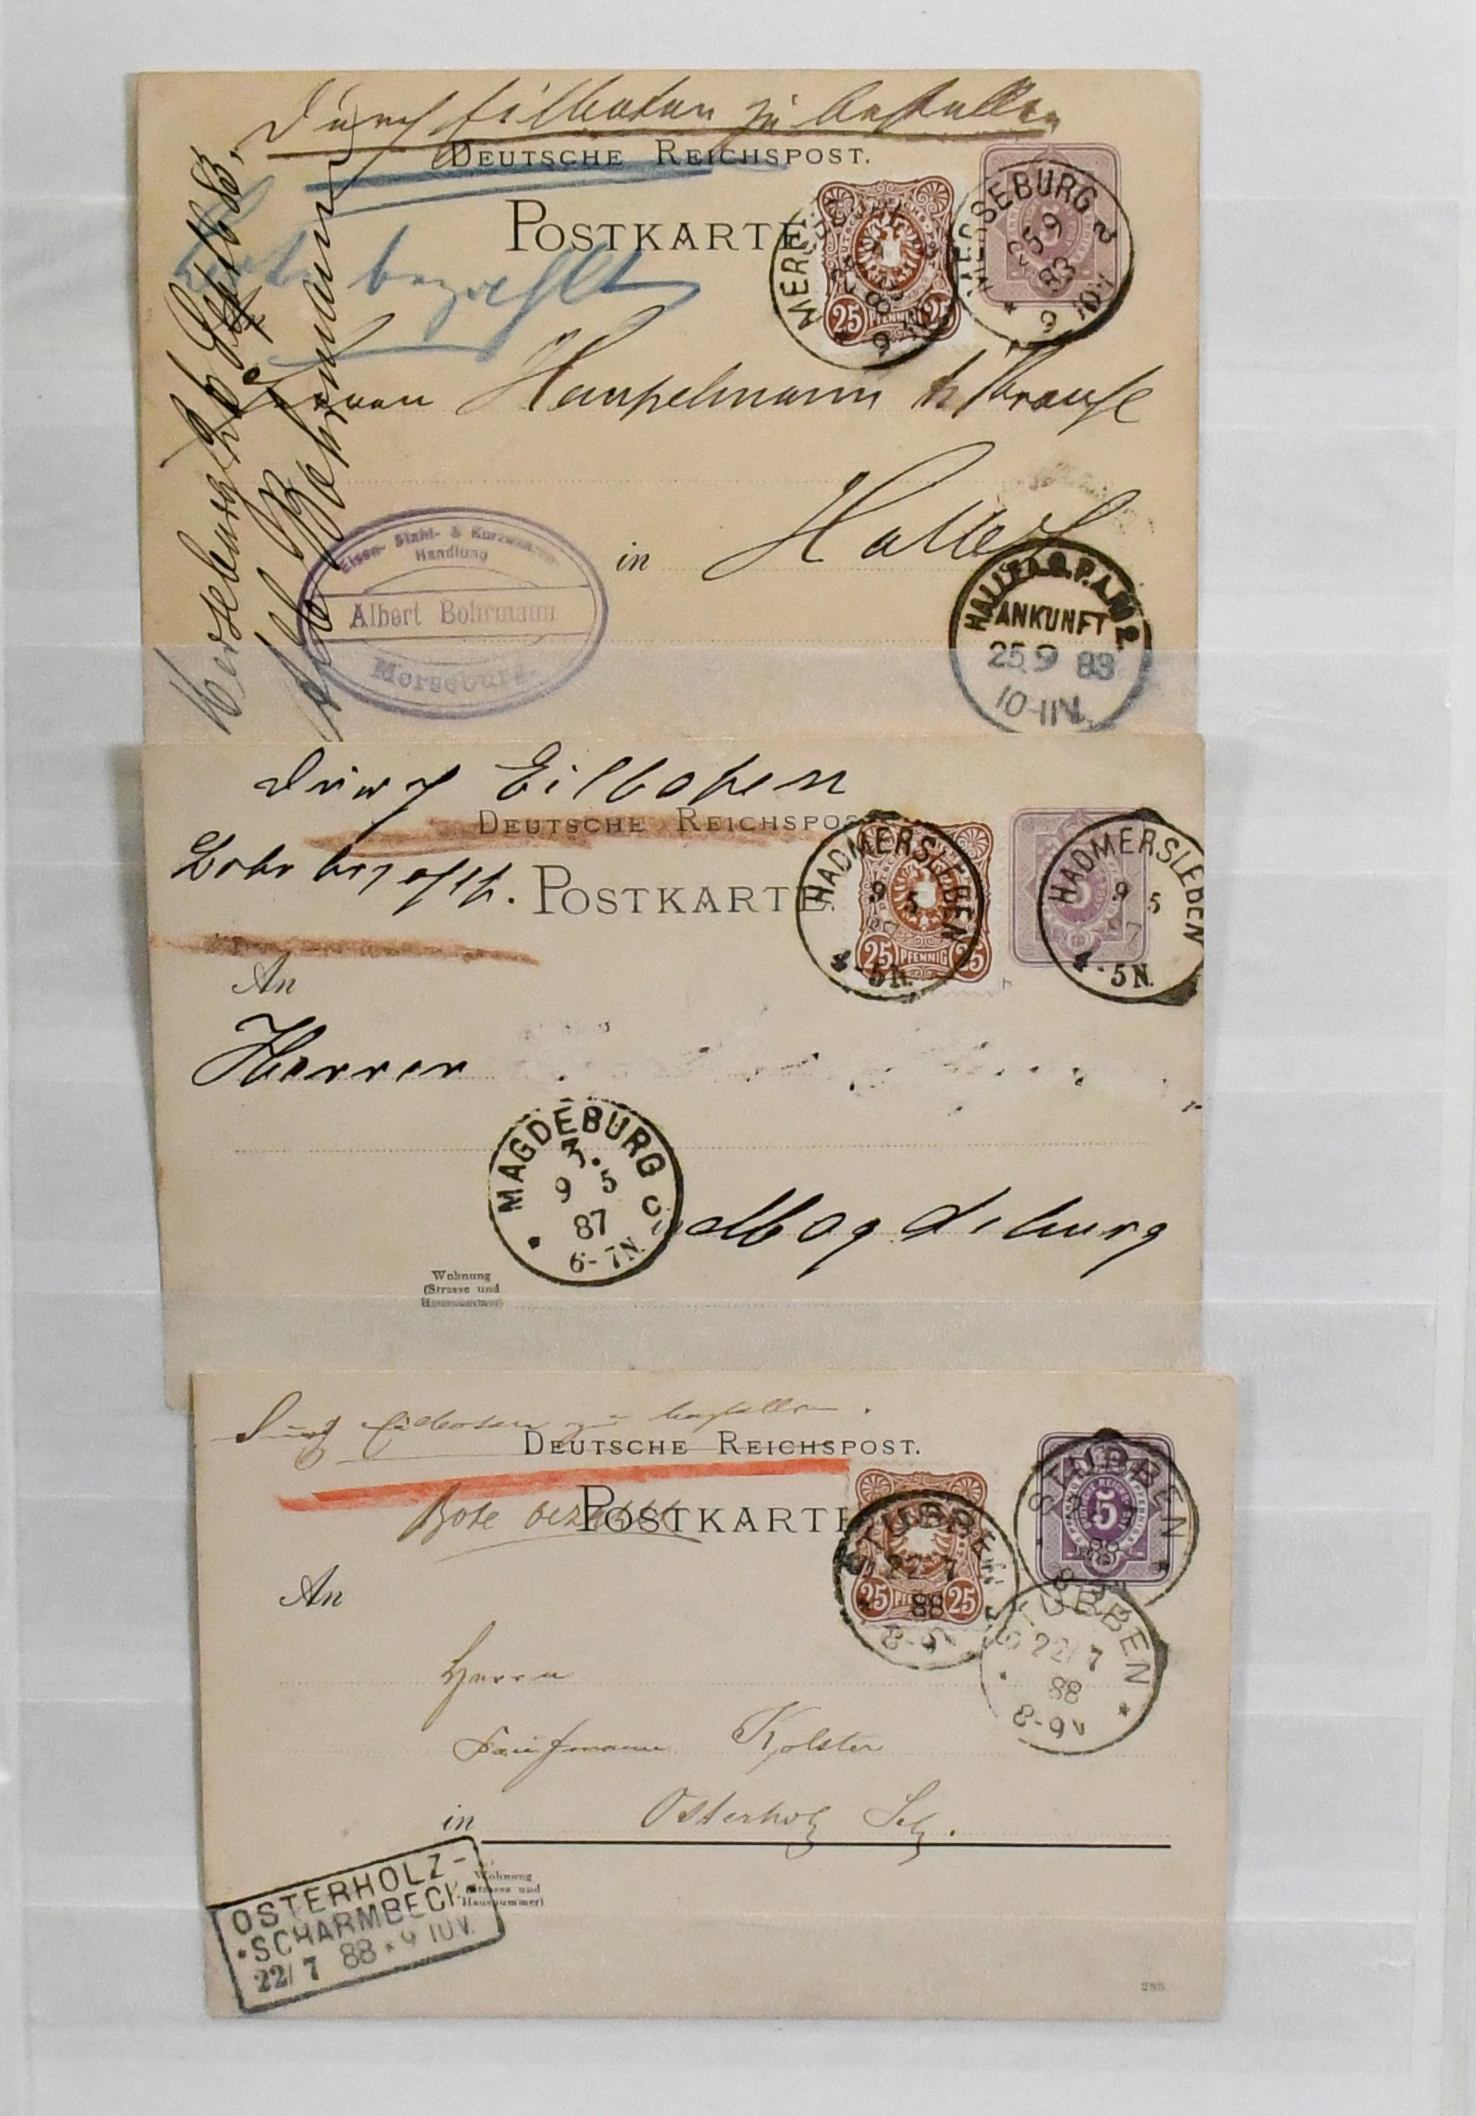 Durch Eilboten zu bestellen
DEUTSCHE REICHSPOST.
POSTKARTE
bezahlt
25 PFENNIG 25
MERSEBURG
9
MERSEBURG
25 9
83
9
Merseburg
Bohrmann
Herren Hampelmann & Krause
in Halle
Eisen- Stahl- & Kurzwaaren
Handlung
Albert Bohrmann
Merseburg.
HALLE A.S. P.A. № 2.
ANKUNFT
25.9 83
10-11N.
Durch Eilboten
DEUTSCHE REICHSPOST
Bote bezahlt.
POSTKARTE.
25 PFENNIG 25
HADMERSLEBEN
9 5
4-5N.
5
HADMERSLEBEN
9 5
87
4-5N.
An
Herrn
MAGDEBURG
9 5
87
6-7N.
in Magdeburg
Wohnung
(Strasse und
Hausnummer)
Durch Eilboten zu bestellen.
DEUTSCHE REICHSPOST.
Bote bezahlt
POSTKARTE
25 PFENNIG 25
STUBBEN
22 7
88
8-9V
5
STUBBEN
STUBBEN
22/7
88
8-9V
An
Herrn
Kaufmann Kolster
in Osterholz Sch.
Wohnung
(Strasse und
Hausnummer)
OSTERHOLZ-
SCHARMBECK
22/7 88 * 9-10V.